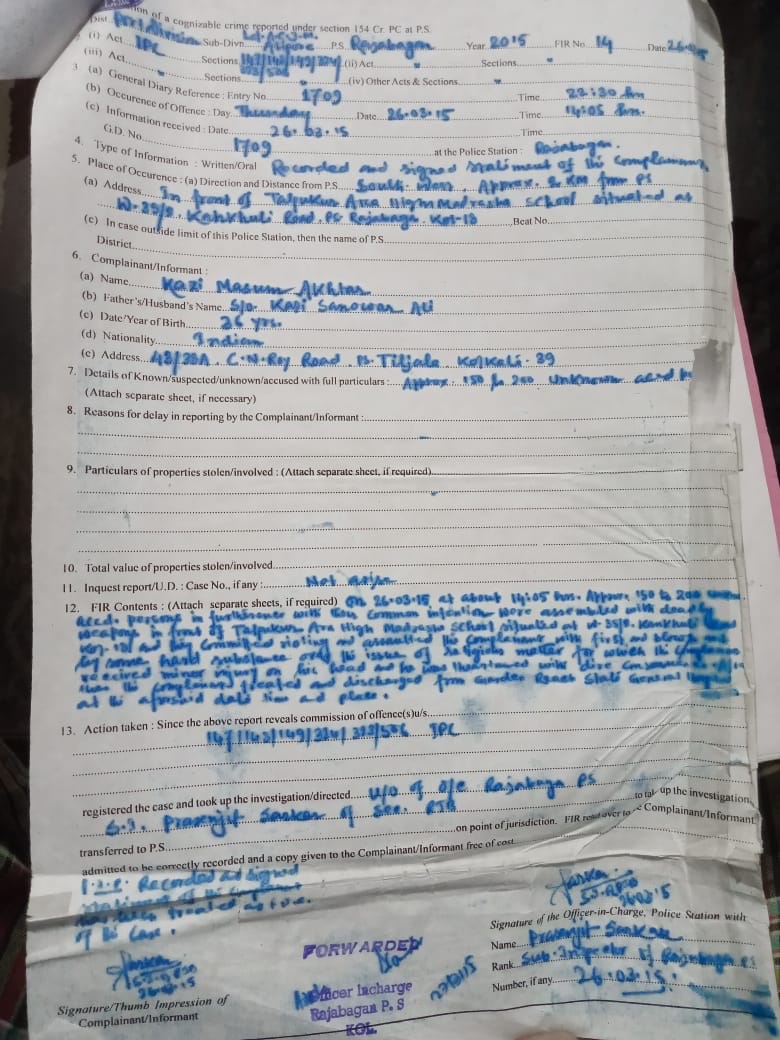 ion of a cognizable crime reported under section 154 Cr. PC at P.S.
Dist. Port Division Sub-Divn. Alipore P.S. Rajabagan Year 2015 FIR No. 14 Date 26.03.15
(i) Act IPC Sections 147/148/149/324/ (ii) Act Sections
323/506
(iii) Act Sections (iv) Other Acts & Sections
3. (a) General Diary Reference : Entry No. 1709 Time 22:30 hrs
(b) Occurence of Offence : Day Thursday Date 26.03.15 Time 14:05 hrs.
(c) Information received : Date 26.03.15 Time
G.D. No. 1709 at the Police Station : Rajabagan.
4. Type of Information : Written/Oral Recorded and signed statment of the complainant
5. Place of Occurence : (a) Direction and Distance from P.S. South West, Approx. 2 KM from PS
(a) Address In front of Talpukur Ara High Madrasha School situated at
Kankhuli Road, PS Rajabagan Kol-18 Beat No.
(c) In case outside limit of this Police Station, then the name of P.S.
District
6. Complainant/Informant :
(a) Name Kazi Masum Akhtar
(b) Father's/Husband's Name S/o. Kazi Sanowar Ali
(c) Date/Year of Birth yrs.
(d) Nationality Indian
(e) Address 48/ C.N. Roy Road, PS. Tiljala Kolkata - 39
7. Details of Known/suspected/unknown/accused with full particulars : Approx : 150 to 200 unknown accd
(Attach separate sheet, if necessary)
8. Reasons for delay in reporting by the Complainant/Informant :
9. Particulars of properties stolen/involved : (Attach separate sheet, if required)
10. Total value of properties stolen/involved
11. Inquest report/U.D. : Case No., if any : Not arise
12. FIR Contents : (Attach separate sheets, if required) On 26.03.15 at about 14:05 hrs. Approx, 150 to 200
accd. persons in furtherance with their common intention were assembled with deadly
weapons in front of Talpukur Ara High Madrasha School situated at Kankhuli
and they committed rioting and assaulted the complainant with fist and blows and
by some hard substance over the issue of religious matter for which the
received minor injury on his head and he was threatened with dire
then the complainant treated and discharged from Garden Reach State General
at the aforesaid date time and place.
13. Action taken : Since the above report reveals commission of offence(s)u/s.
147/148/149/324/323/506 IPC
registered the case and took up the investigation/directed u/o of o/c Rajabagan PS
S.I. Prasenjit Sarkar of to tak up the investigation,
transferred to P.S. on point of jurisdiction. FIR read over to e Complainant/Informant
admitted to be correctly recorded and a copy given to the Complainant/Informant free of cost.
Recorded and signed
statment of the
has been treated as
of the case.
26.03.15
Signature of the Officer-in-Charge, Police Station with
Name Prasenjit Sarkar
Rank Sub-Inspector of Rajabagan PS
Number, if any 26.03.15
FORWARDED
Officer Incharge
Rajabagan P. S
KOL.
27/3/15
26.03.15
Signature/Thumb Impression of
Complainant/Informant